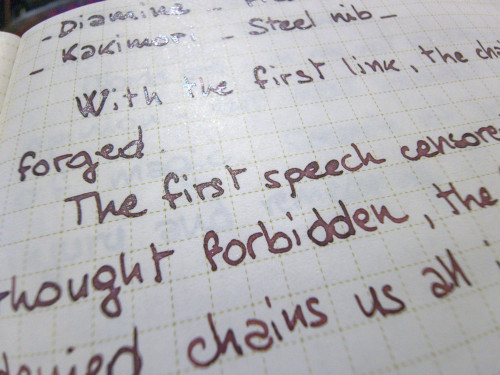 - Diamine -
- Kakimori - Steel nib -
With the first link, the
forged.
The first speech
thought forbidden, the
denied chains us all